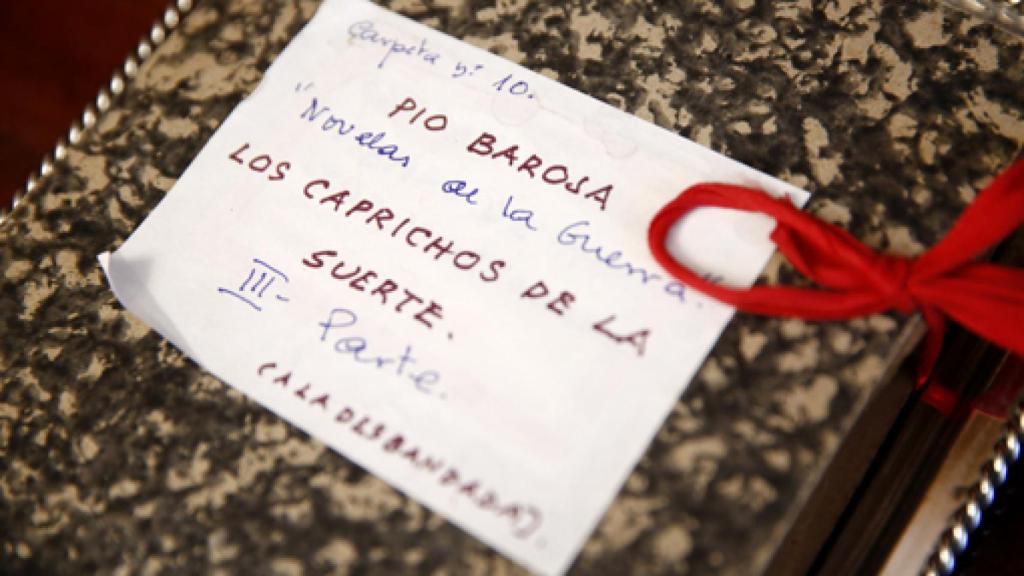 Carpeta nº 10.
PIO BAROJA
"Novelas de la Guerra."
LOS CAPRICHOS DE LA
SUERTE.
III- Parte.
(A LA DESBANDADA)